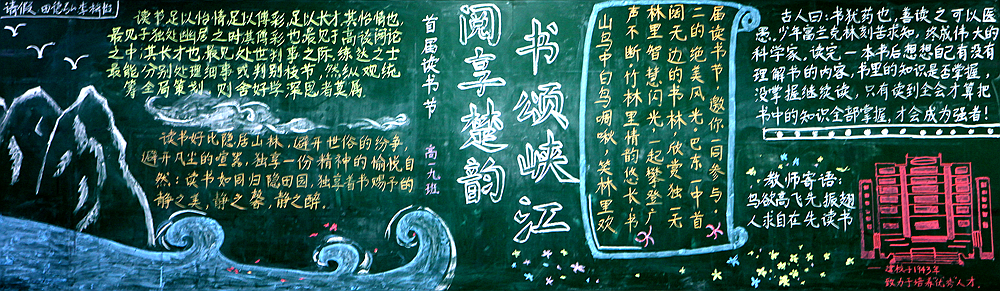 请假 田德弘 李桥出
读节足以怡情,足以傅彩,足以长才。其怡情也,
最见于独处幽居之时;其傅彩也,最见于高谈阔论
之中;其长才也,最见处世判事之际。练达之士
最能分别处理细事或判别枝节,然纵观统
筹全局策划,则舍好学深思者莫属。
读书好比隐居山林,避开世俗的纷争
避开风尘的喧嚣,独享一份精神的愉悦自
然;读书如同归隐田园,独享着书赐予的
静之美,静之馨,静之醉。
首届读书节
高九班
阅享楚韵
书颂峡江
届读书节,邀你一同参与。
二的绝美风光。巴东二中首
阔无边的书林,欣赏独一无
林里智慧闪光,一起攀登广
声不断竹林里情韵悠长,书
山鸟中白鸟啁啾,笑林里欢
古人曰:书犹药也,善读之可以医
愚,少年富兰克林刻苦求知,终成伟大的
科学家,读完一本书后想想自己有没有
理解书的内容,书里的知识是否掌握,
没掌握继续读,只有读到全会才算把
书中的知识全部掌握,才会成为强者!
教师寄语:
鸟欲高飞先振翅
人求自在先读书
建校于1943年
致力于培养"优秀"人才.